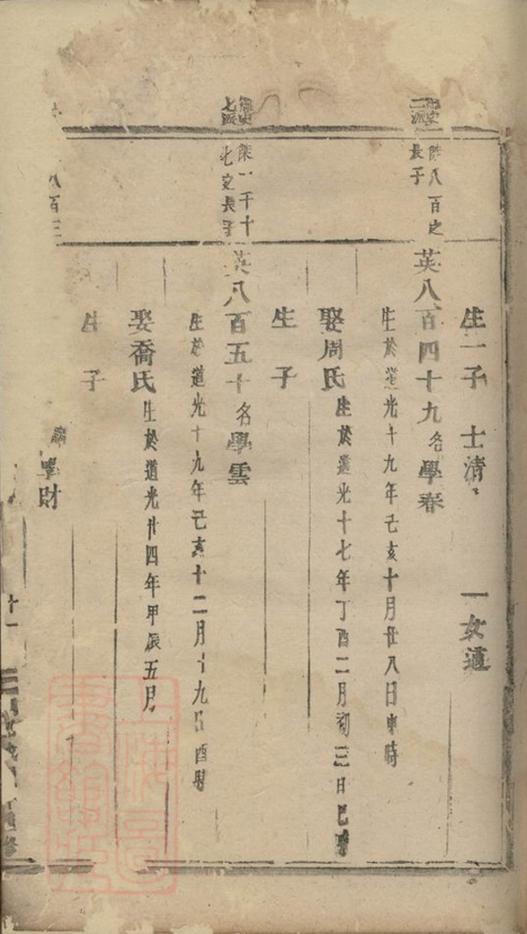 生一子 士清 一女適
二派 陳八百之長子
英八百四十九名學春
生於道光十九年己亥十月廿八日申時
娶周氏生於道光十七年丁酉二月初三日巳時
生 子
七 陳一千十七 之長子
英八百五十名學雲
生於道光十九年己亥十二月十九日酉時
娶喬氏生於道光廿四年甲辰五月
生 子
財
八百三
十一